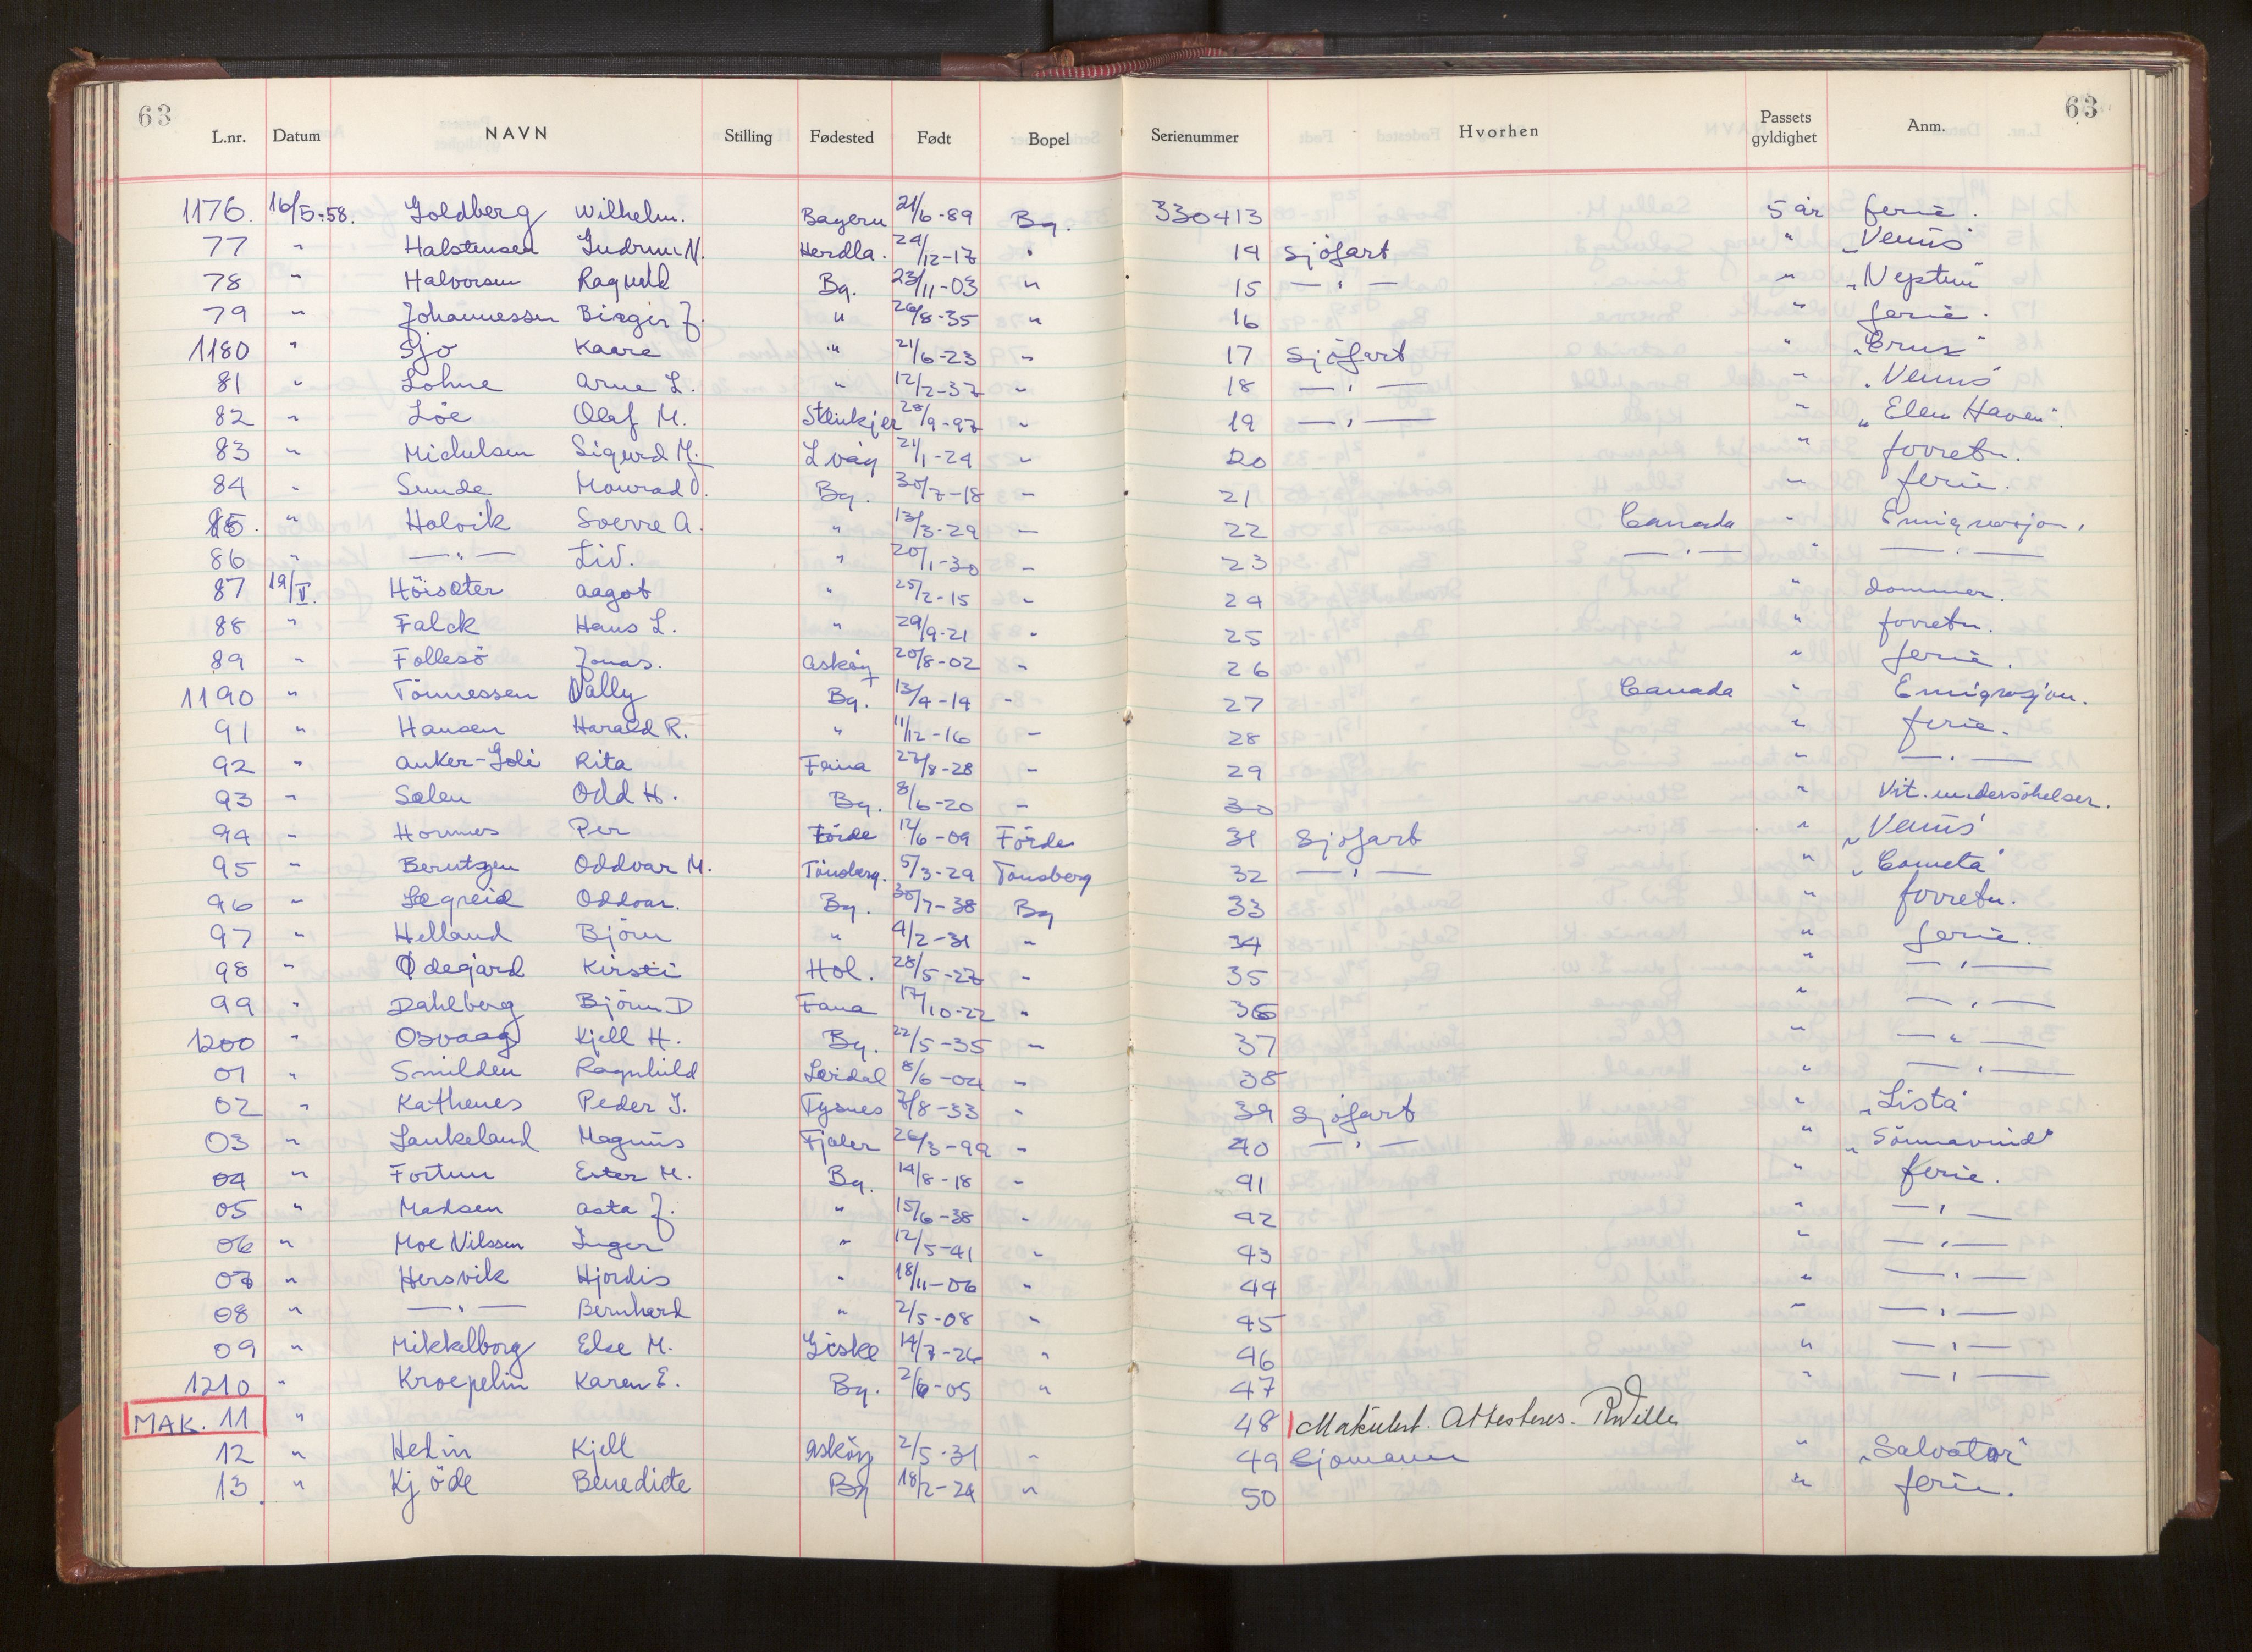 63 63
L.nr. Datum NAVN Stilling Fødested Født Bopel Serienummer Hvorhen Passets gyldighet Anm.
1176. 16/5-58. Goldberg Wilhelm. Bayern 21/6-89 Bg. 330413 5 år ferie.
77 " Halstensen Gudrun N. Herdla. 24/12-17 " 14 Sjöfart " "Venus"
78 " Halvorsen Ragnhild Bg. 23/11-03 " 15 — " — " "Neptun"
79 " Johannessen Birger J. " 26/8-35 " 16 " ferie.
1180 " Sjo Kaare " 21/6-23 " 17 Sjöfart " "Crux"
81 " Lohne Arne L. " 12/2-37 " 18 — " — " "Venus"
82 " Löe Olaf M. Steinkjer 28/9-97 " 19 — " — " "Elen Haven".
83 " Michelsen Sigurd M. Lvåg 21/1-24 " 20 " forretn.
84 " Sunde Monrad O. Bg. 30/7-18 " 21 " ferie.
85. " Holvik Sverre A. " 13/3-29 — 22 Canada " Emigrasjon.
86 " — " — Liv. " 20/1-30 — 23 — " — " — " —
87 19/V. Höisæter Aagot " 25/2-15 " 24 " dommer.
88 " Falck Hans L. " 29/9-21 " 25 " forretn.
89 " Follesö Jonas. Asköy 20/8-02 " 26 " ferie.
1190 " Tönnessen Vally Bg. 13/4-14 " 27 Canada " Emigrasjon.
91 " Hansen Harald R. " 11/12-16 — 28 " ferie.
92 " Anker-Goli Rita Fana 27/8-28 — 29 " — " —
93 " Salen Odd H. Bg. 8/6-20 — 30 " Vit. undersöhelser.
94 " Hornnes Per Förde 12/6-09 Förde 31 Sjöfart " "Venus"
95 " Berntzen Oddvar M. Tönsberg. 5/3-29 Tönsberg 32 — " — " "Cometa"
96 " Lægreid Oddvar. Bg. 30/7-38 Bg 33 " forretn.
97 " Helland Björn " 4/2-31 " 34 " ferie.
98 " Ødegård Kirsti Hol. 28/5-27 " 35 " — " —
99 " Dahlberg Björn D Fana 17/10-22 " 36 " — " —
1200 " Osvaag Kjell H. Bg. 22/5-35 — 37 " — " —
01 " Smilden Ragnhild Lærdal 8/6-04 " 38 " — " —
02 " Kathenes Peder J. Tysnes 7/8-33 " 39 Sjöfart " "Lista"
03 " Laukeland Magnus Fjaler 26/3-99 " 40 — " — " "Sönnavind"
04 " Fortun Ester M. Bg. 14/8-18 " 41 " ferie.
05 " Madsen Asta J. " 15/6-38 " 42 " — " —
06 " Moe Nilssen Inger " 12/5-41 " 43 " — " —
07 " Hersvik Hjördis " 18/11-06 " 44 " — " —
08 " — " — Bernhard " 2/5-08 " 45 " — " —
09 " Mikkelborg Else M. Giske 14/7-26 " 46 " — " —
1210 " Kroepelin Karen E. Bg. 2/6-05 " 47 " — " —
MAK. 11 " 48 Makulert. Attesteres.
12 " Hedin Kjell Asköy 2/5-31 " 49 Sjömann " "Salvator"
13 " Kjöde Benedicte Bg 18/2-24 " 50 " ferie.